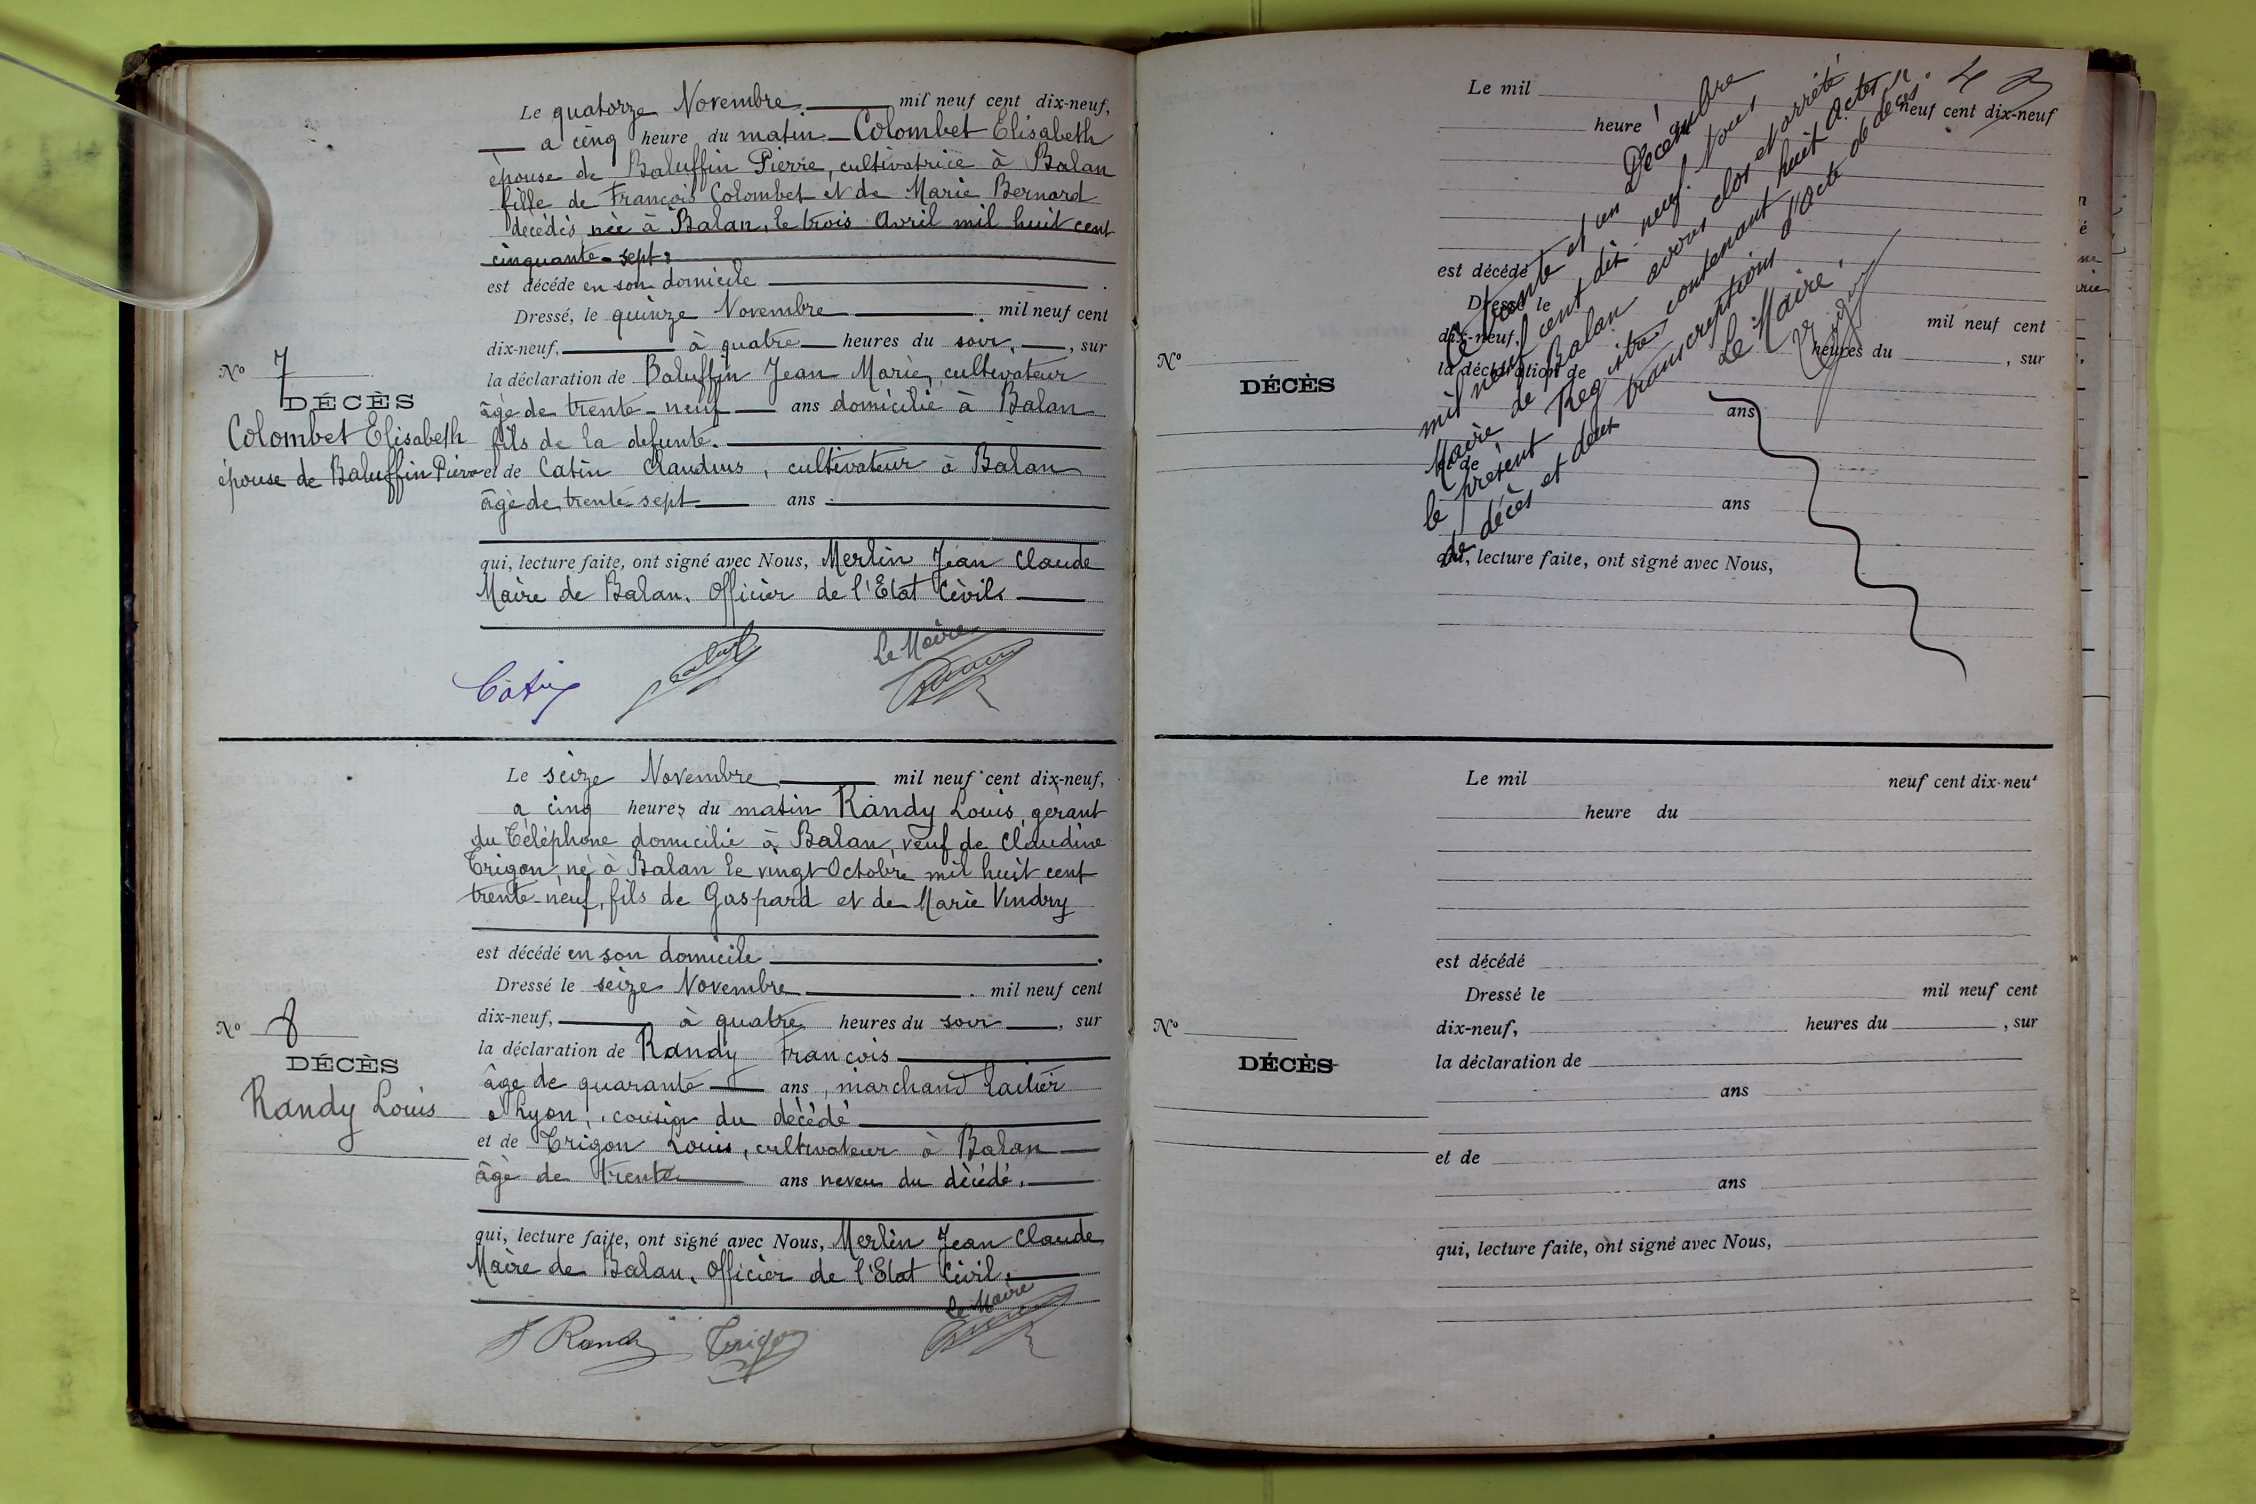 Le quatorze Novembre mil neuf cent dix-neuf,
a cinq heure du matin Colombet Elisabeth
épouse de Baluffin Pierre, cultivatrice à Balan
fille de François Colombet et de Marie Bernard
décédés née à Balan, le trois Avril mil huit cent
cinquante-sept.
est décédé en son domicile
Dressé, le quinze Novembre mil neuf cent
dix-neuf, à quatre heures du soir, sur
la déclaration de Baluffin Jean Marie, cultivateur
âgé de trente-neuf ans domicilié à Balan
fils de la defunte.
et de Catin Claudius, cultivateur à Balan
âgé de trente sept ans
qui, lecture faite, ont signé avec Nous, Merlin Jean Claude
Maire de Balan, Officier de l'Etat Civil.
Nº 7
DÉCÈS
Colombet Elisabeth
épouse de Baluffin Pierre
Catin
Le Maire
Le seize Novembre mil neuf cent dix-neuf,
a cinq heures du matin Randy Louis, gérant
du Téléphone domicilié à Balan, veuf de Claudine
Trigon, né à Balan le vingt Octobre mil huit cent
trente-neuf, fils de Gaspard et de Marie Vindry
est décédé en son domicile
Dressé le seize Novembre mil neuf cent
dix-neuf, à quatre heures du soir, sur
la déclaration de Randy François
âgé de quarante ans, marchand laitier
a Lyon, cousin du décédé
et de Trigon Louis, cultivateur à Balan
âgé de trente ans neveu du décédé.
qui, lecture faite, ont signé avec Nous, Merlin Jean Claude
Maire de Balan, Officier de l'Etat Civil.
Nº 8
DÉCÈS
Randy Louis
F Randy Trigon
Le Maire
4
Le mil neuf cent dix-neuf
heure
est décédé
Dressé le mil neuf cent
dix-neuf, heures du , sur
la déclaration de
ans
et de
ans
qui, lecture faite, ont signé avec Nous,
Nº
DÉCÈS
Le trente et un Décembre
mil neuf cent dix neuf. Nous
Maire de Balan avons clos et arrêté
le présent Registre contenant huit actes
de décès et deux transcriptions d'acte de décès.
Le Maire,
Le mil neuf cent dix-neuf
heure du
est décédé
Dressé le mil neuf cent
dix-neuf, heures du , sur
la déclaration de
ans
et de
ans
qui, lecture faite, ont signé avec Nous,
Nº
DÉCÈS